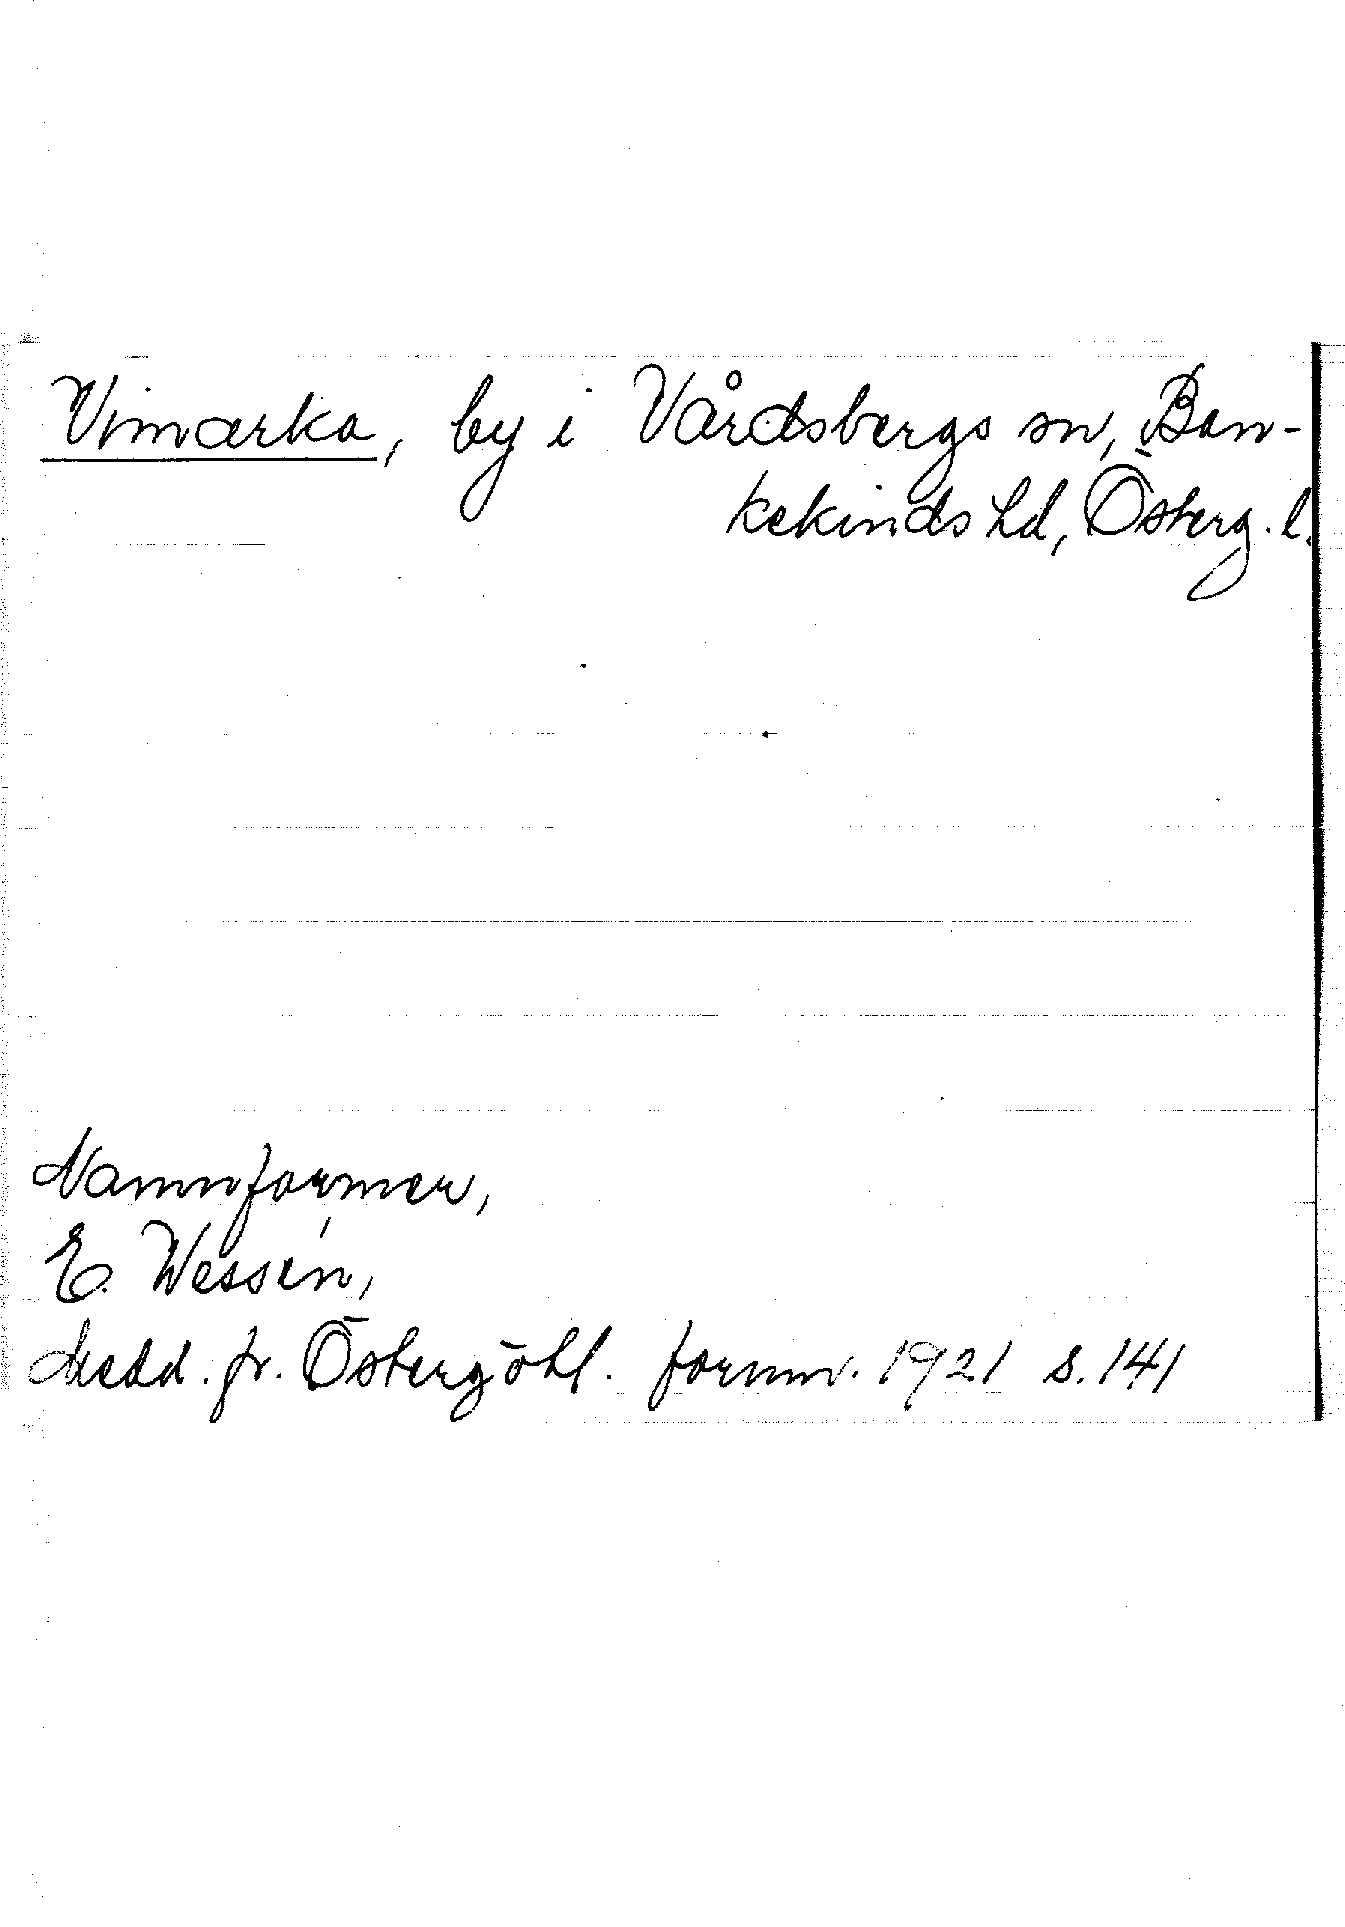 Vimarka, by i Vårdsbergs sn, Ban-
kekinds hd, Österg. l.
Namnformer,
E. Wessén,
Medd. fr. Östergötl. fornm. 1921 s. 141